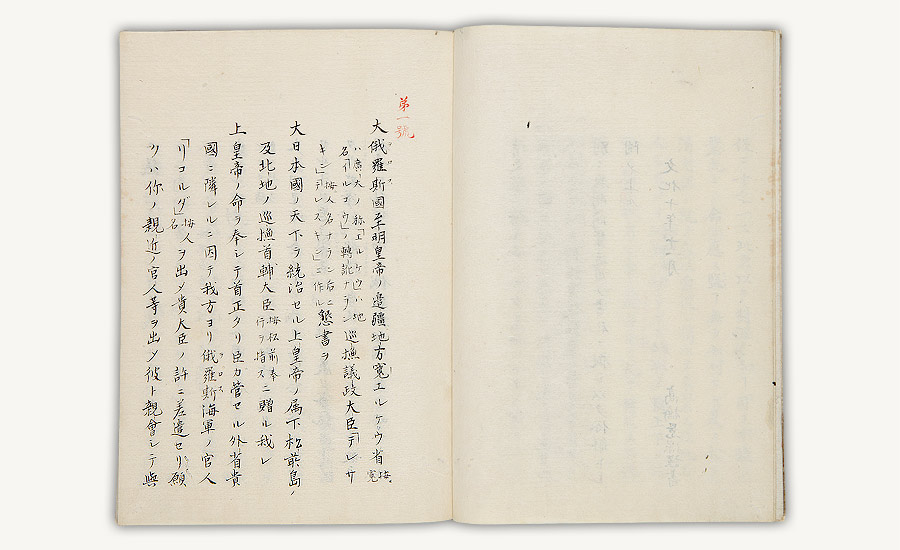 第一號
大俄羅斯國至明皇帝ノ邊疆地方寛エルケウ省按寛
ハ廣大ノ称「エルケウ」ハ地名「イルコウ」ノ轉訛ナラン巡撫議政大臣「テレサ
キン」按人名ナラン后ニ「テレスキン」ニ作ル懇書ヲ
大日本國ノ天下ヲ統治セル上皇帝ノ属下松前島ノ
及北地ノ巡撫首輔大臣按松前奉行ヲ指スニ贈ル我レ
上皇帝ノ命ヲ奉シテ首正タリ臣カ管セル外省貴
國ニ隣レルニ因テ我方ヨリ俄羅斯海軍ノ官人
「リコルダ」按人名ヲ出メ貴大臣ノ許ニ差遣セリ願
クハ你ノ親近ノ官人等ヲ出メ彼ト親會シテ與